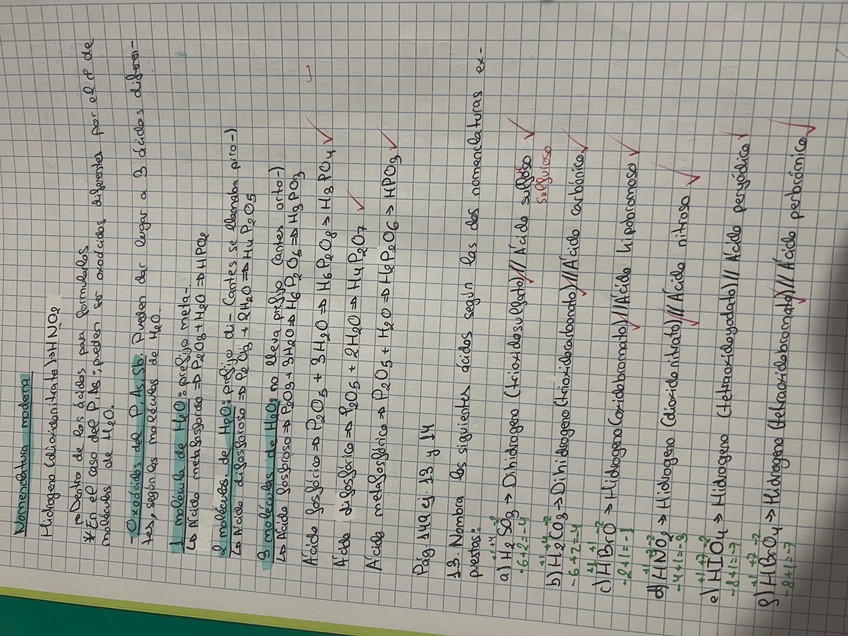 Nomenclatura moderna
Hidrogeno (dioxidonitrato)⇒HNO2
→Dentro de los ácidos para formularlos
* En el caso del P, As; pueden ser oxoácidos diferentes por el nº de
moléculas de H2O.
- Oxoácidos del P, As, Sb: Pueden dar lugar a 3 ácidos diferen-
tes, según las moléculas de H2O
1 molécula de H2O: prefijo meta-
↳ Ácido metafosforoso ⇒ P2O3 + H2O ⇒ HPO2
2 moléculas de H2O: prefijo di- (antes se llamaba piro-)
↳ Ácido difosforoso ⇒ P2O3 + 2H2O ⇒ H4P2O5
3 moléculas de H2O: no lleva prefijo (antes orto-)
↳ Ácido fosforoso ⇒ P2O3 + 3H2O ⇒ H6P2O6 ⇒ H3PO3
Ácido fosfórico ⇒ P2O5 + 3H2O ⇒ H6P2O8 ⇒ H3PO4 ✓
Ácido difosfórico ⇒ P2O5 + 2H2O ⇒ H4P2O7 ✓
Ácido metafosfórico ⇒ P2O5 + H2O ⇒ H2P2O6 ⇒ HPO3 ✓
Pág 149 ej 13 y 14
13. Nombra los siguientes ácidos según las dos nomenclaturas ex-
puestas:
a) H2SO3 → Dihidrogeno (trioxidosulfato) // Ácido sulfoso ✓
-6+2=-4
sulfuroso
+1 +4 -2
b) H2CO3 → Dihidrogeno (trioxidocarbonato) // Ácido carbónico ✓
-6+2=4
+1 +1 -2
c) HBrO → Hidrogeno (oxidobromato) // Ácido hipobromoso ✓
-2+1=-1
d) HNO2 → Hidrogeno (dioxidonitrato) // Ácido nitroso ✓
-4+1=-3
+1 +7 -2
e) HIO4 → Hidrogeno (tetraoxidoyodato) // Ácido peryódico ✓
-8+1=-7
+1 +7 -2
f) HBrO4 → Hidrogeno (tetraoxidobromato) // Ácido perbrómico ✓
8+1=-7